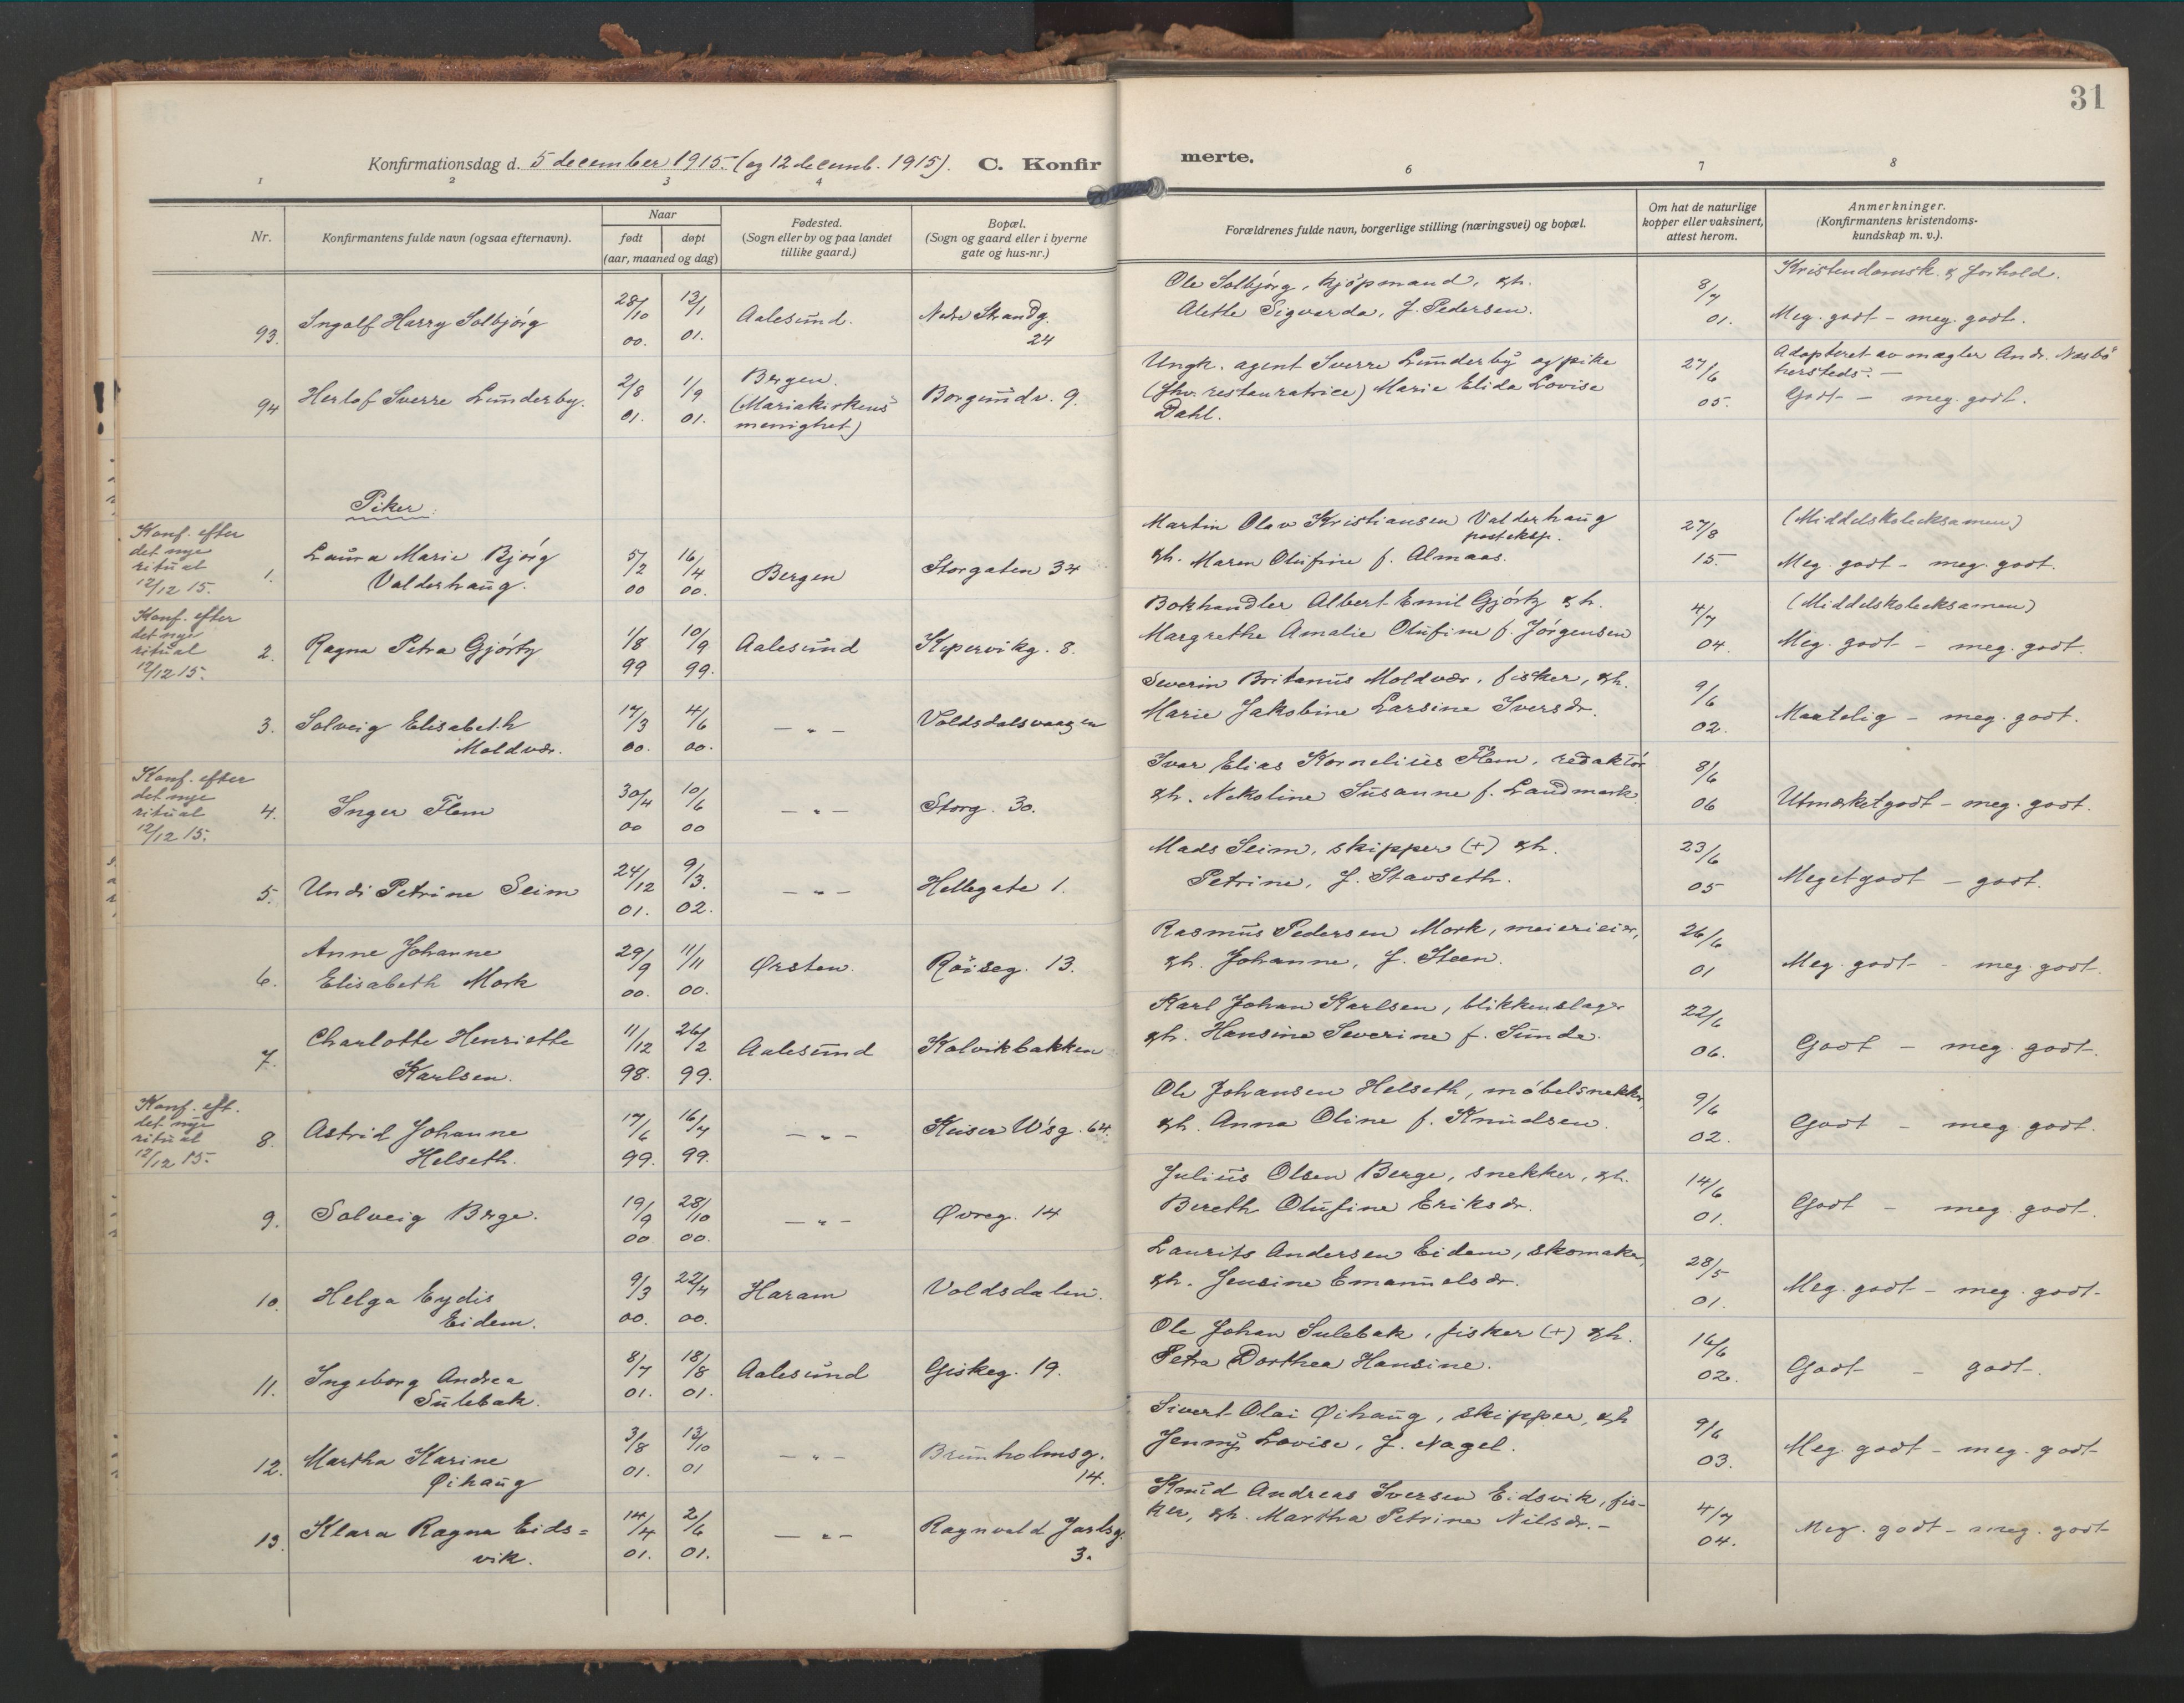 31
Konfirmationsdag d. 5 december 1915. (og 12 decemb. 1915). C. Konfir merte.
1 2 3 4 6 7 8
Nr.
Konfirmantens fulde navn (ogsaa efternavn).
Naar
født døpt
(aar, maaned og dag)
Fødested.
(Sogn eller by og paa landet
tillike gaard.)
Bopæl.
(Sogn og gaard eller i byerne
gate og hus-nr.)
Forældrenes fulde navn, borgerlige stilling (næringsvei) og bopæl.
Om hat de naturlige
kopper eller vaksinert,
attest herom.
Anmerkninger.
(Konfirmantens kristendoms-
kundskap m. v.).
Kristendomsk. & forhold.
93. Ingolf Harry Solbjørg 28/10 00. 13/1 01. Aalesund. Nedre Strandg. 24
Ole Solbjørg, kjøpmand, & h.
Alette Sigvarda, f. Pedersen.
8/7 01. Meg. godt - meg. godt.
! 94 Herlof Sverre Lunderby. 2/8 01. 1/9 01. Bergen.
(Mariakirkens
menighet)
Borgundv. 9.
Ungk. agent Sverre Lunderby og pike
(fhv. restauratrice) Marie Elida Lovise
Dahl.
27/6 05.
Adopteret av mægler Andr. Næsbø
hersteds. -
Godt - meg. godt.
Piker:
Konf. efter
det nye
ritual
12/12 15.
1. Laura Marie Bjørg
Valderhaug.
5/2 00 16/4 00. Bergen Storgaten 34
Martin Olav Kristiansen Valderhaug
posteksp.
& h. Maren Olufine f. Almaas.
27/8 15.
(Middelskoleeksamen)
Meg. godt - meg. godt.
Konf. efter
det nye
ritual
12/12 15.
2. Ragna Petra Gjørtz 1/8 99 10/9 99. Aalesund Kipervikg. 8.
Bokhandler Albert Emil Gjørtz & h.
Margrethe Amalie Olufine f. Jørgensen
4/7 04.
(Middelskoleeksamen)
Meg. godt - meg. godt.
3. Solveig Elisabeth
Moldvær.
17/3 00. 4/6 00. - " - Voldsdalsvaagen
Severin Britanus Moldvær, fisker, & h.
Marie Jakobine Larsine Iversdr.
9/6 02. Maatelig - meg. godt.
Konf. efter
det nye
ritual
12/12 15.
4. Inger Flem 30/4 00 10/6 00 - " - Storg. 30.
Ivar Elias Kornelius Flem, redaktør
& h. Nekoline Susanne f. Landmark
8/6 06 Utmerket godt - meg. godt.
5. Undi Petrine Seim 24/12 01. 9/3. 02. - " - Hellegate 1.
Mads Seim, skipper (+) & h.
Petrine, f. Stavseth.
23/6 05 Meget godt - godt.
6. Anne Johanne
Elisabeth Mork
29/9 00. 11/11 00. Ørsten Røiseg. 13.
Rasmus Pedersen Mork, meierieier,
& h. Johanne, f. Steen.
26/6 01 Meg. godt - meg. godt.
7. Charlotte Henriette
Karlsen.
11/12 98. 26/2 99. Aalesund Kolvikbakken
Karl Johan Karlsen, blikkenslager
& h. Hansine Severine f. Sunde.
22/6 06. Godt - meg. godt.
Konf. eft.
det nye
ritual
12/12 15.
8. Astrid Johanne
Helseth.
17/6 99. 16/7 99. - " - Keiser W's g. 64.
Ole Johansen Helseth, møbelsnekker,
& h. Anna Oline f. Knudsen.
9/6 02. Godt - meg. godt.
9. Solveig Berge. 19/9 00 28/10 00. - " - Øvreg. 14
Julius Olsen Berge, snekker, & h.
Bereth Olufine Eriksdr.
14/6 01. Godt - meg. godt.
10. Helga Eydis
Eidem.
9/3 00. 22/4 00. Haram Voldsdalen.
Laurits Andersen Eidem, skomaker,
& h. Jensine Emanuelsdr.
28/5 01. Meg. godt - meg. godt.
11. Ingeborg Andrea
Sulebak.
8/7 01. 18/8 01. Aalesund Giskeg. 19.
Ole Johan Sulebak, fisker (+) & h.
Petra Dorthea Hansine.
16/6 02. Godt - godt.
12. Martha Karine
Øihaug
3/8 01. 13/10 01 - " - Brunholmsg.
14.
Sivert Olai Øihaug, skipper, & h
Jenny Lovise, f. Nagel.
9/6 03. Meg. godt - meg. godt
13. Klara Ragna Eids=
vik.
14/4 01. 2/6 01. - " - Ragnvald Jarlsg.
3.
Knud Andreas Iversen Eidsvik, fis-
ker, & h. Martha Petrine Nilsdr. -
4/7 04. Meg. godt - meg. godt